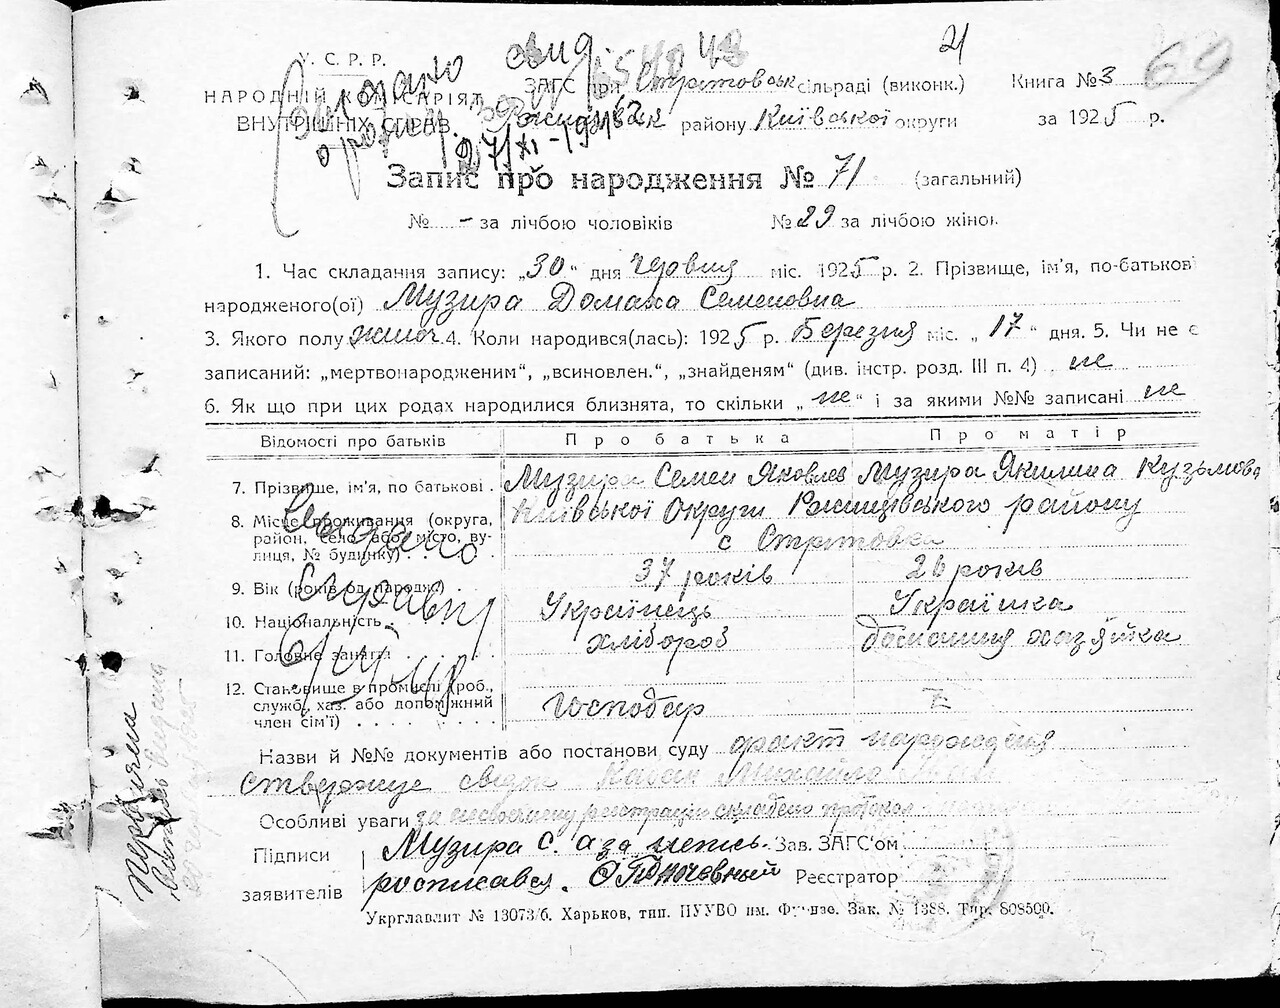 21
69
У. С. Р. Р.
НАРОДНІЙ КОМІСАРІЯТ
ВНУТРІШНІХ СПРАВ
ЗАГС при Стритовськ сільраді (виконк.) Книга № 3
району Київської округи за 1925 р.
Запис про народження № 71 (загальний)
№ - за лічбою чоловіків № 29 за лічбою жінок
1. Час складання запису: „30“ дня Червня міс. 1925 р. 2. Прізвище, ім'я, по-батькові
народженого(ої) Музира Домаха Семеновна
3. Якого полу жіноч. 4. Коли народився(лась): 1925 р. Березня міс. „17“ дня. 5. Чи не є
записаний: „мертвонародженим“, „всиновлен.“, „знайденям“ (див. інстр. розд. III п. 4) не
6. Як що при цих родах народилися близнята, то скільки „не“ і за якими №№ записані не
Відомості про батьків Про батька Про матір
7. Прізвище, ім'я, по батькові . Музира Семен Яковлев Музира Якилина Кузьмова
8. Місце проживання (округа, Київської Округи Ржищівського району
район, село або місто, ву- с Стритовка
лиця, № будинку)
9. Вік (років од народж.) 37 років 26 років
10. Національність Українець Українка
11. Головне заняття хлібороб домашня хазяйка
12. Становище в промислі (роб.,
служб., хаз. або допоміжний Господар
член сім'ї)
Назви й №№ документів або постанови суду факт народження
стверджує свідок Михайло
Особливі уваги за несвоєчасну реєстрацію складено протокол
Підписи Музира С. а за непись. Зав. ЗАГС'ом
заявителів росписався. Реєстратор
Укрглавлит № 13073/б. Харьков, тип. ПУУВО им. Фрунзе. Зак. № 1388. Тир. 808500.